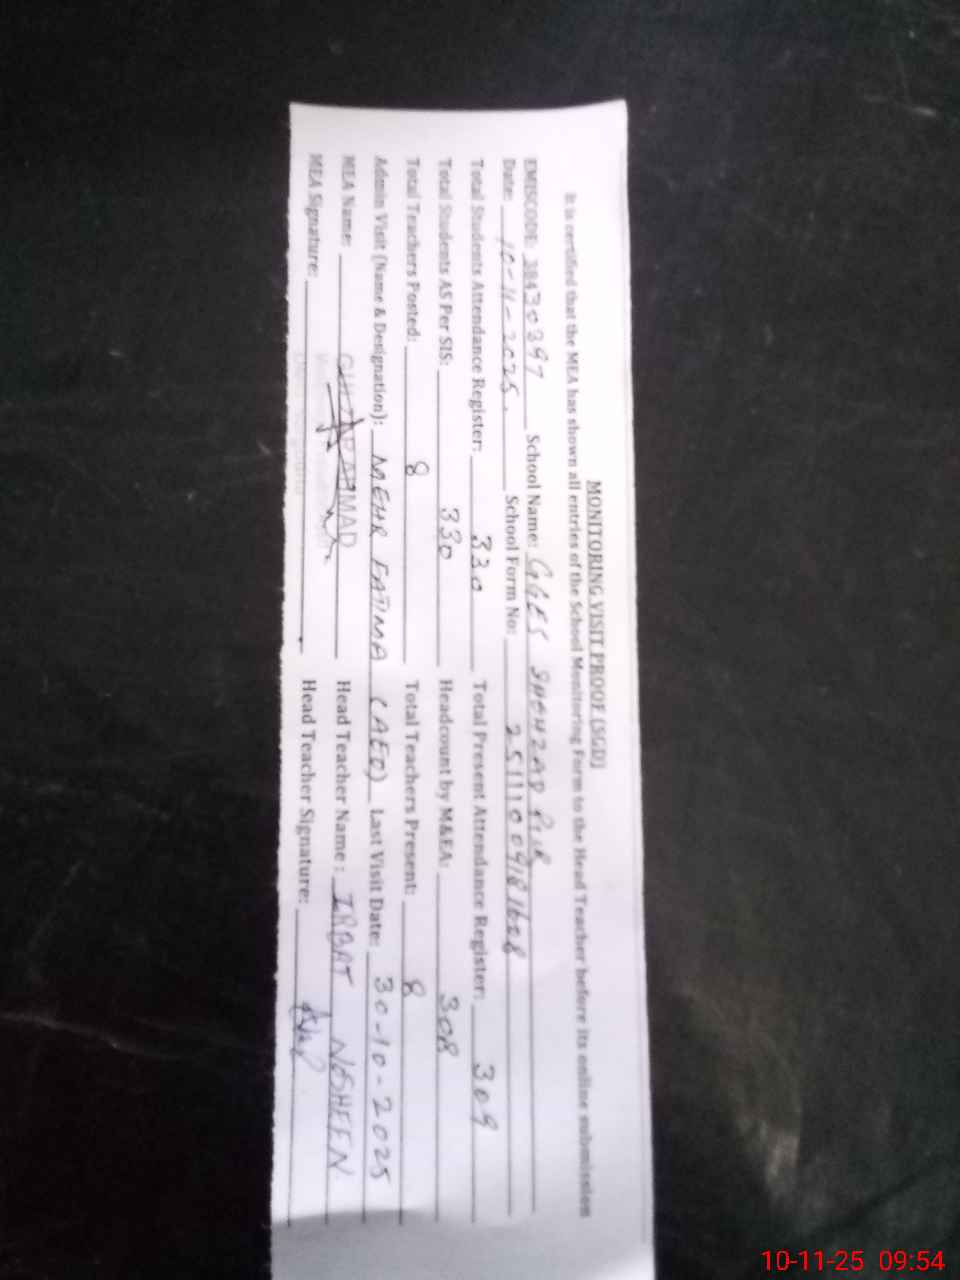 MONITORING VISIT PROOF (SGD)
It is certified that the MEA has shown all entries of the School Monitoring Form to the Head Teacher before its online submission
EMISCODE: 38430397 School Name: GGES SHEHZAD PUR
Date: 10-11-2025. School Form No: 2511100918
Total Students Attendance Register: 330 Total Present Attendance Register: 309
Total Students AS Per SIS: 330 Headcount by M&EA: 308
Total Teachers Posted: 8 Total Teachers Present: 8
Admin Visit (Name & Designation): MEHR FATIMA (AEO) Last Visit Date: 30-10-2025
MEA Name: AHMAD Head Teacher Name: NOSHEEN
MEA Signature: Head Teacher Signature:
10-11-25 09:54